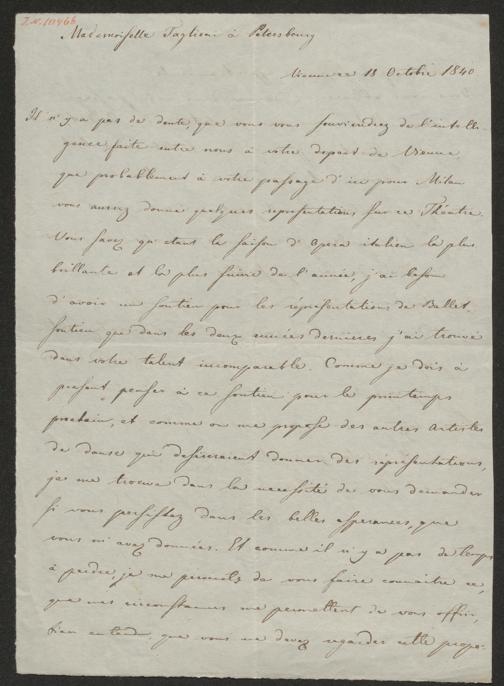 I.N. 111466
Mademoiselle Taglioni à Petersbourg
Vienne ce 18 Octobre 1840
Il n'y a pas de doute, que vous vous souviendrez de l'intelli-
gence faite entre nous à votre depart de Vienne,
que probablement à votre passage d'ici pour Milan
vous auriez donné quelques représentations sur ce Théatre.
Vous savez qu'etant la saison d'Opera italien la plus
brillante et la plus suivie de l'année, j'ai besoin
d'avoir un soutien pour les réprésentations de Ballet,
soutien que dans les deux années dernieres j'ai trouvé
dans votre talent incomparable. Comme je dois à
present penser à ce soutien pour le printemps
prochain, et comme on me propose des autres Artistes
de danse qui desireraient donner des réprésentations,
je me trouve dans la necessité de vous demander
si vous persistez dans les belles esperances, que
vous m'avez données. Et comme il n'y a pas de temps
à perdre, je me permets de vous faire connaitre ce,
que mes circonstances me permettent de vous offrir,
bien entendu, que vous ne devez regarder cette propo-